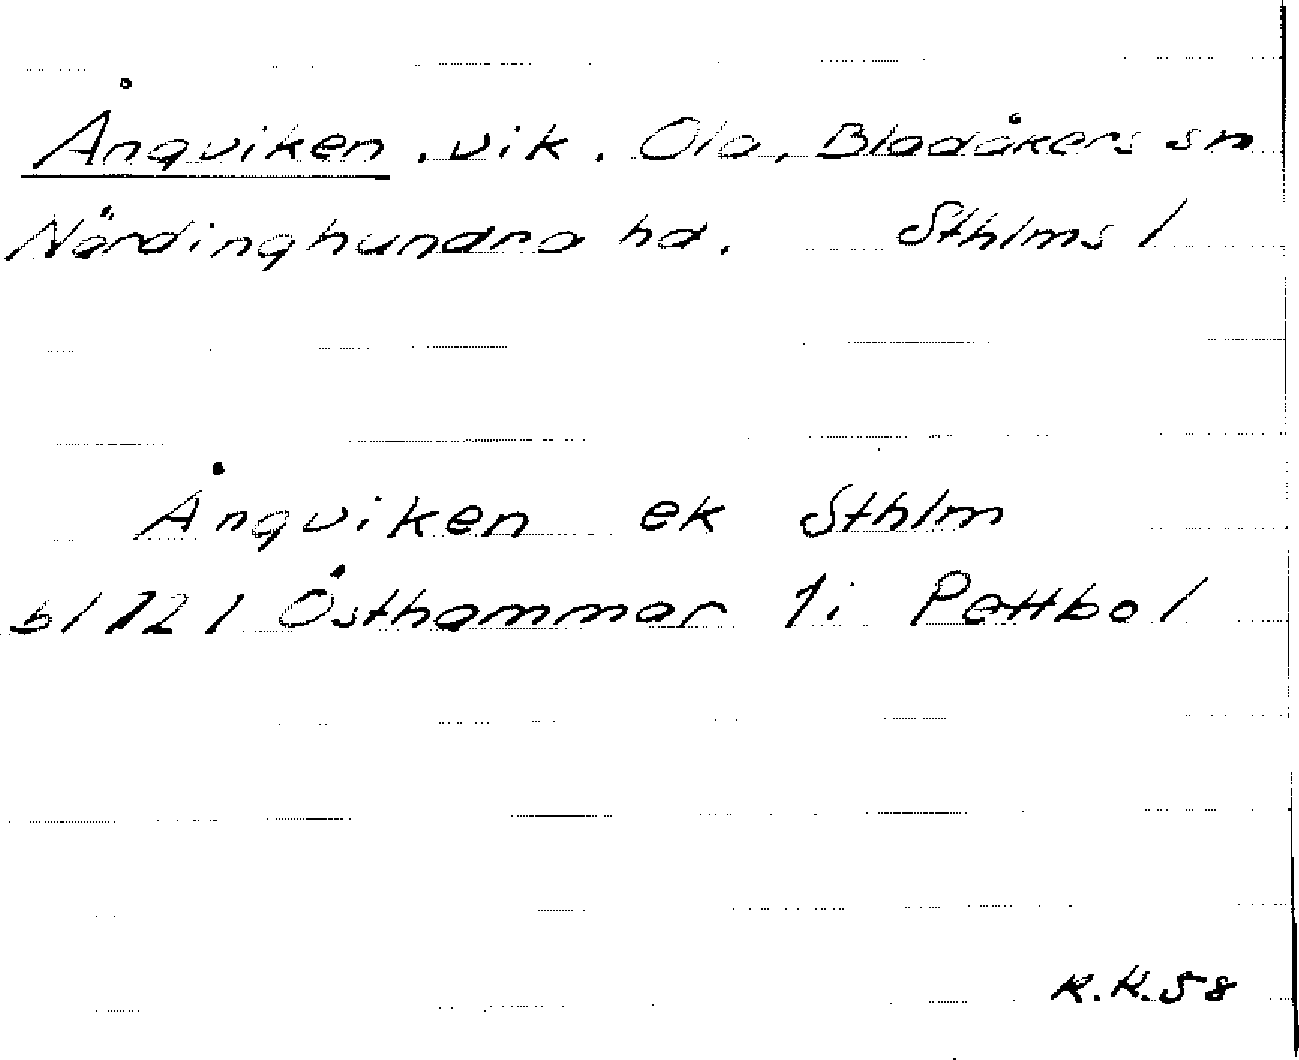 Ångviken, vik. Ola, Bladåkers sn
Närdinghundra hd. Sthlms l
Ångviken ek Sthlm
bl 121 Östhammar 1i Pettbol
K.H.58